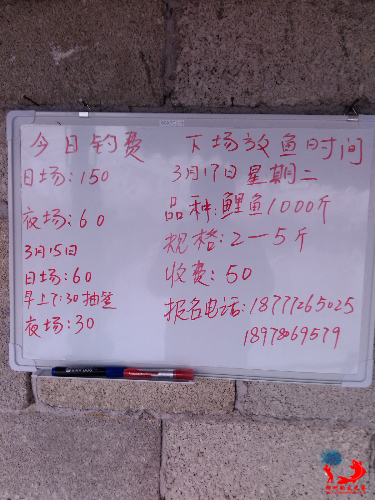 今日钓费
日场:150
夜场:60
3月15日
日场:60
早上7:30抽签
夜场:30
下场放鱼时间
3月17日星期二
品种:鲤鱼1000斤
规格:2—5斤
收费:50
报名电话:18777265025
18978069579